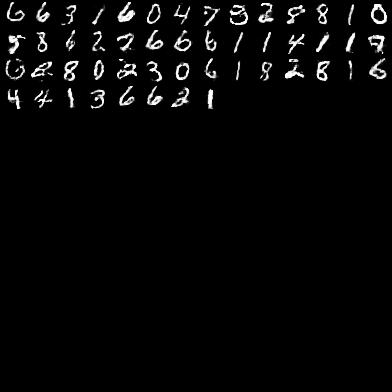 6 6 3 1 6 0 4 7 3 2 8 8 1 0
5 8 6 2 2 6 6 6 1 1 4 1 1 9
0 2 8 0 2 3 0 6 1 8 2 8 1 6
4 4 1 3 6 6 2 1